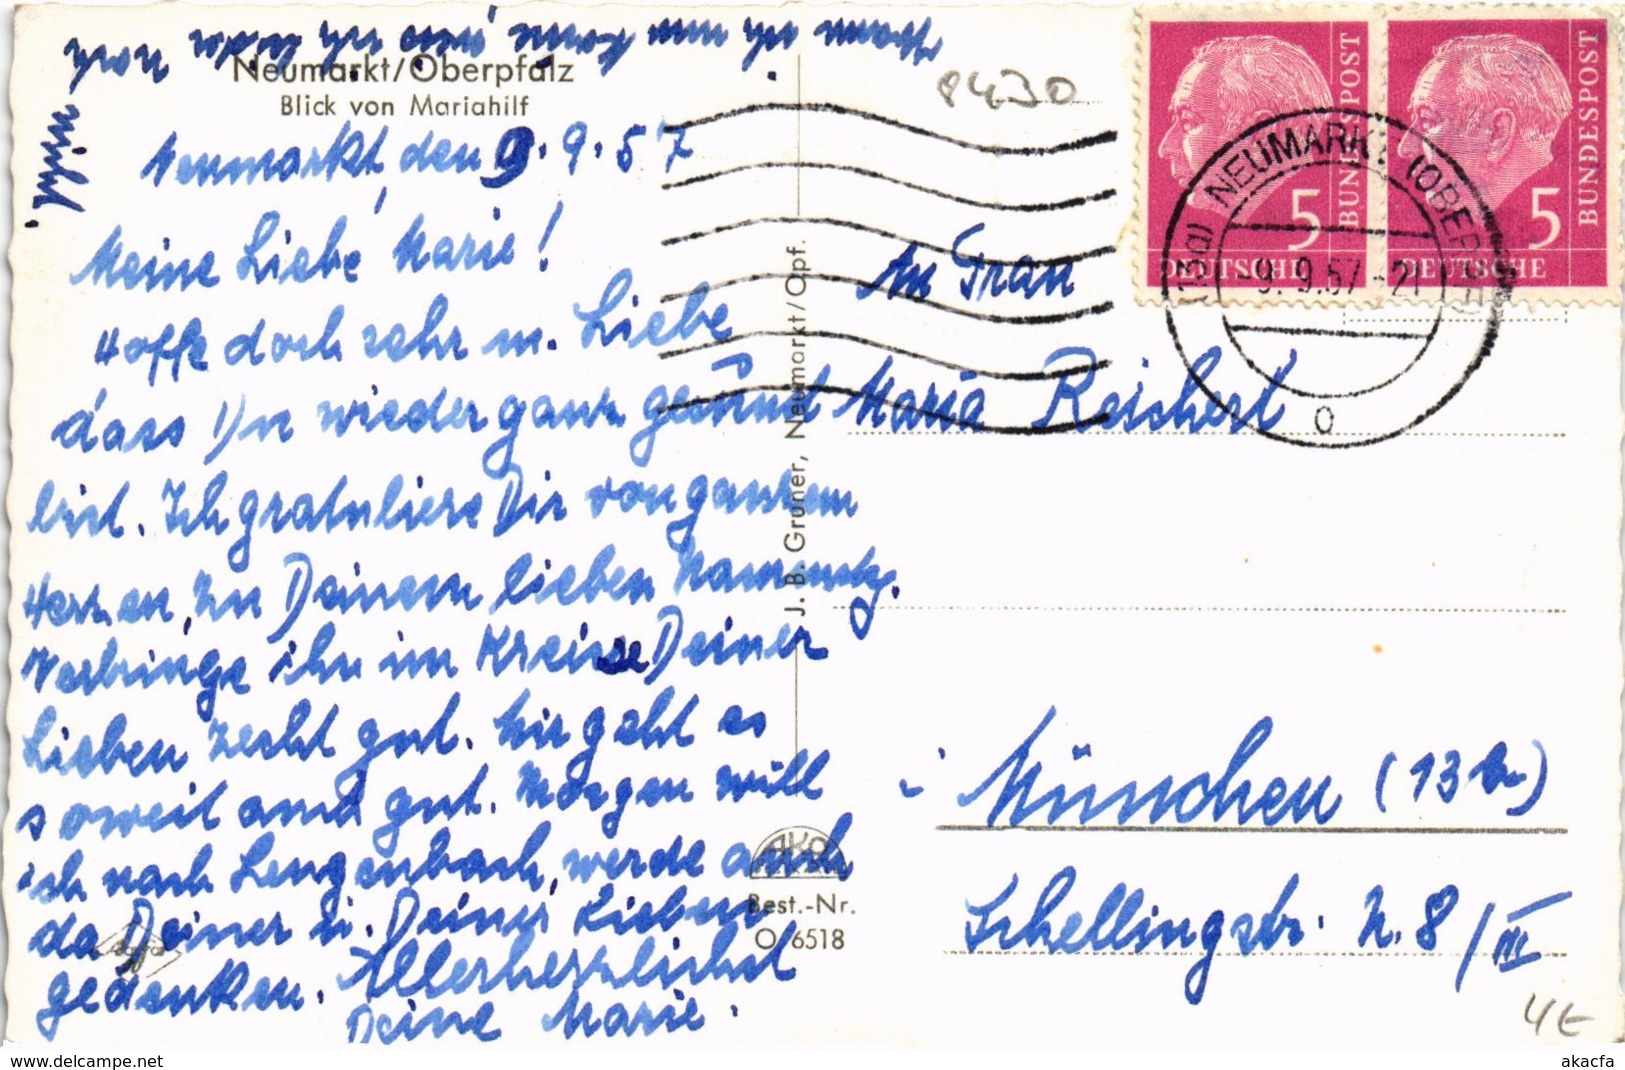 Neumarkt/Oberpfalz
Blick von Mariahilf
Neumarkt, den 9.9.57
Meine Liebe Marie!
Hoffe doch sehr m. Liebe
dass Du wieder ganz gesund
bist. Ich gratuliere Dir von ganzem
Herzen, zu Deinem lieben Namenstg.
Verbringe ihn im Kreise Deiner
Lieben recht gut. Mir geht es
soweit auch gut. Morgen will
ich nach Lengenbach, werde auch
da Deiner u. Deiner Lieben
gedenken. Allerherzlichst
Deine Marie.
wann ich nur kann,
J. B. Gruner, Neumarkt/Opf.
AKO
Best.-Nr.
O/6518
agfa
8430
BUNDESPOST
5
DEUTSCHE
BUNDESPOST
5
DEUTSCHE
(13a) NEUMARKT (OBERPF)
-9.9.57-21
o
An Frau
Maria Reichert
i München (13b)
Schellingstr. N. 8/III
4€
akacfa
www.delcampe.net